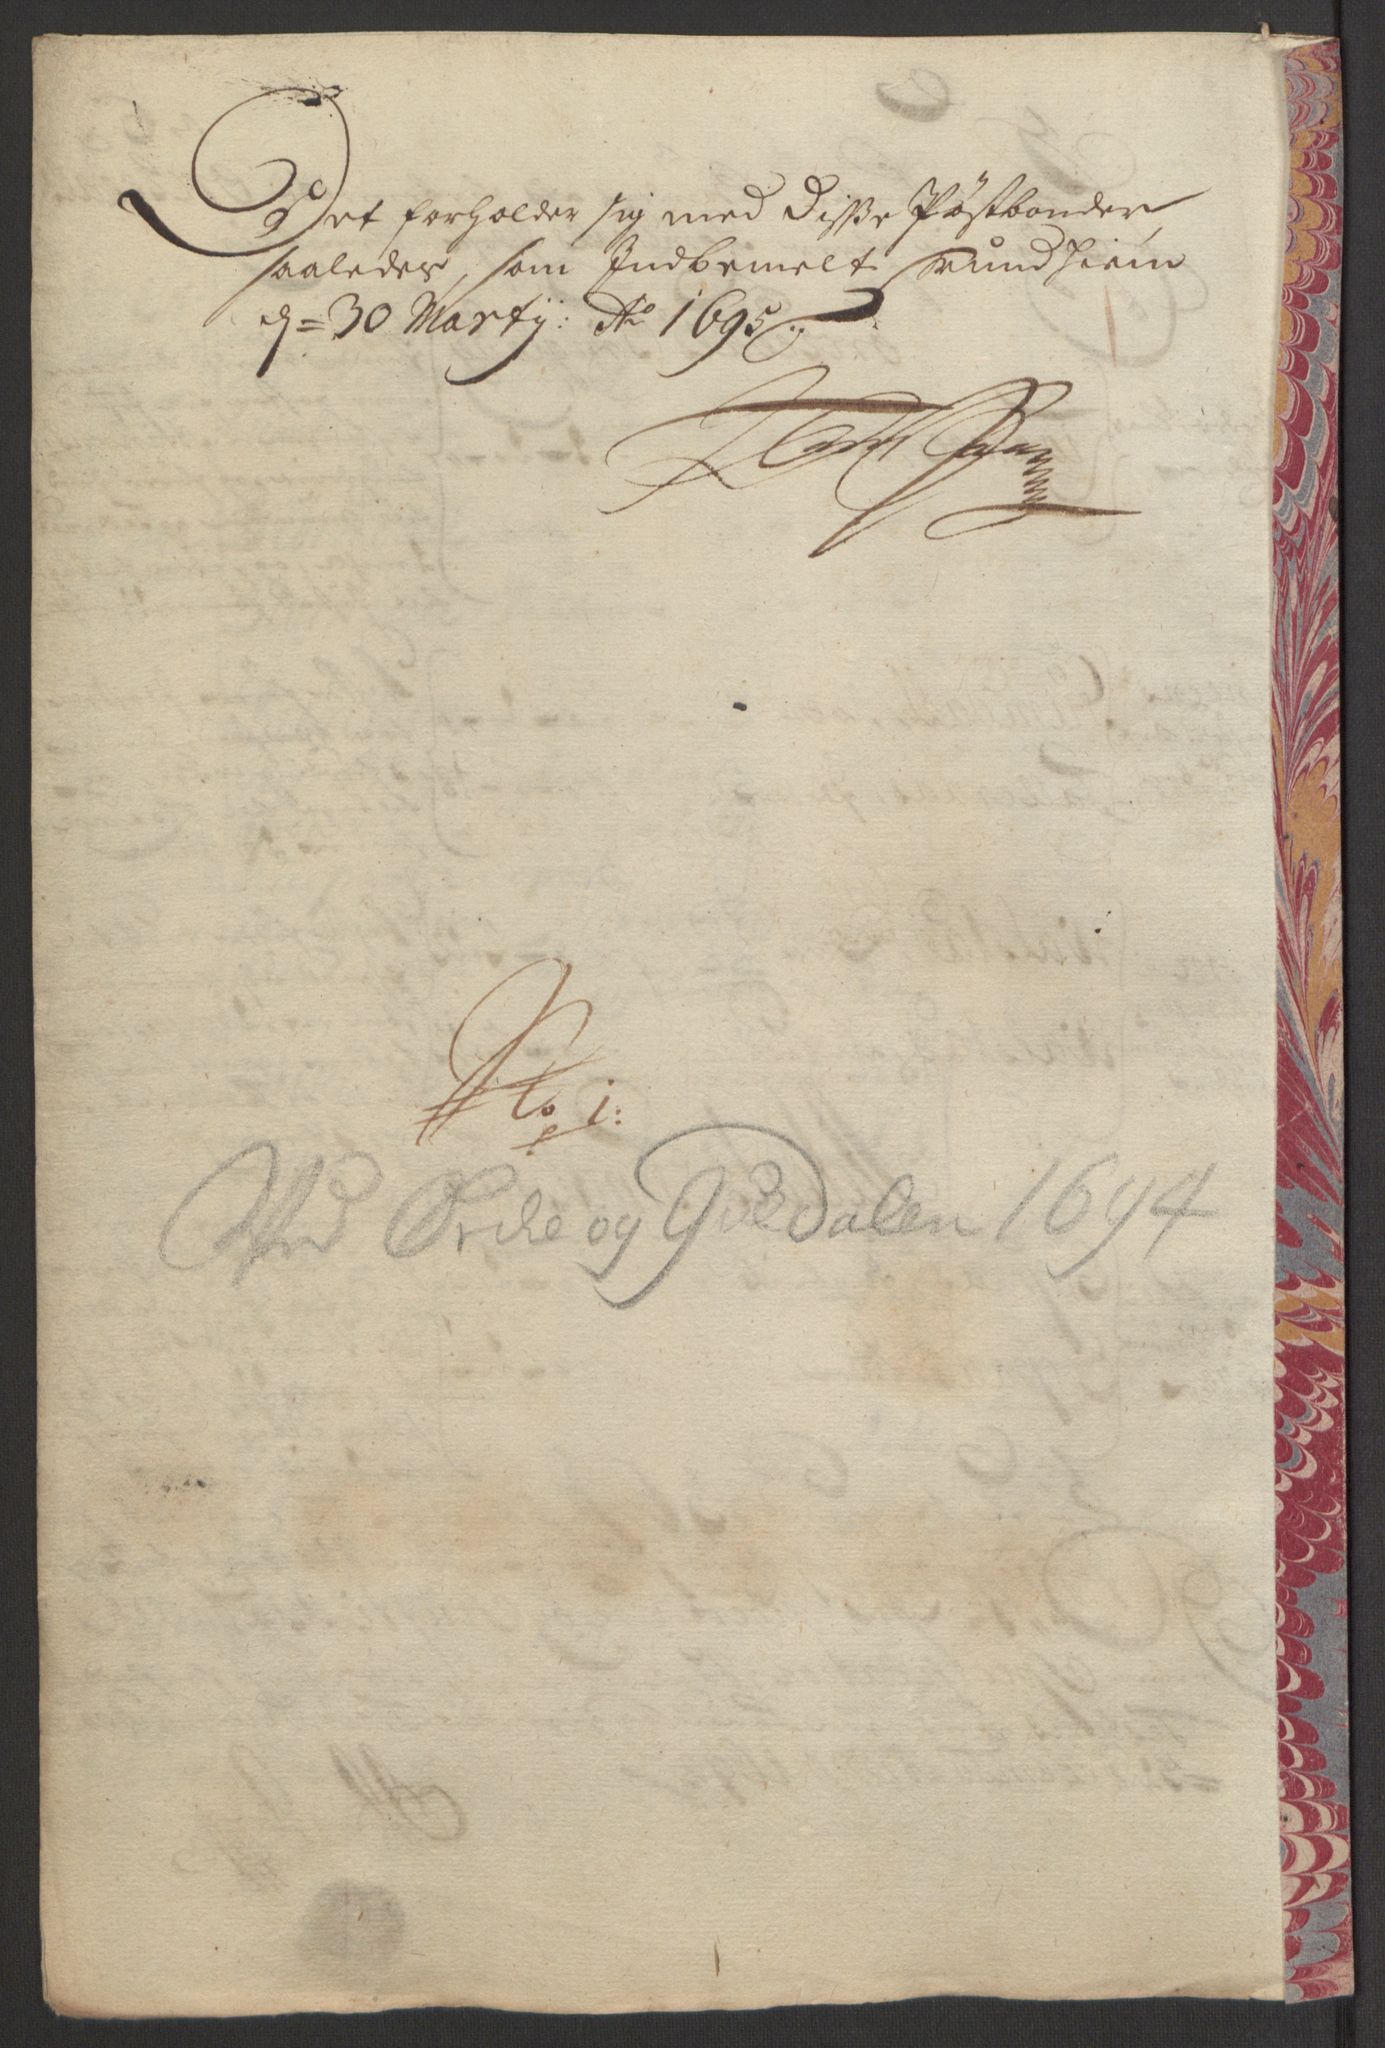 Det forholder sig med disse Postbønder
saaleder, som Indbemelt Trundhiem
d = 30 Martij: Ao 1695.
No 1:
Ørche og Guldalen 1694